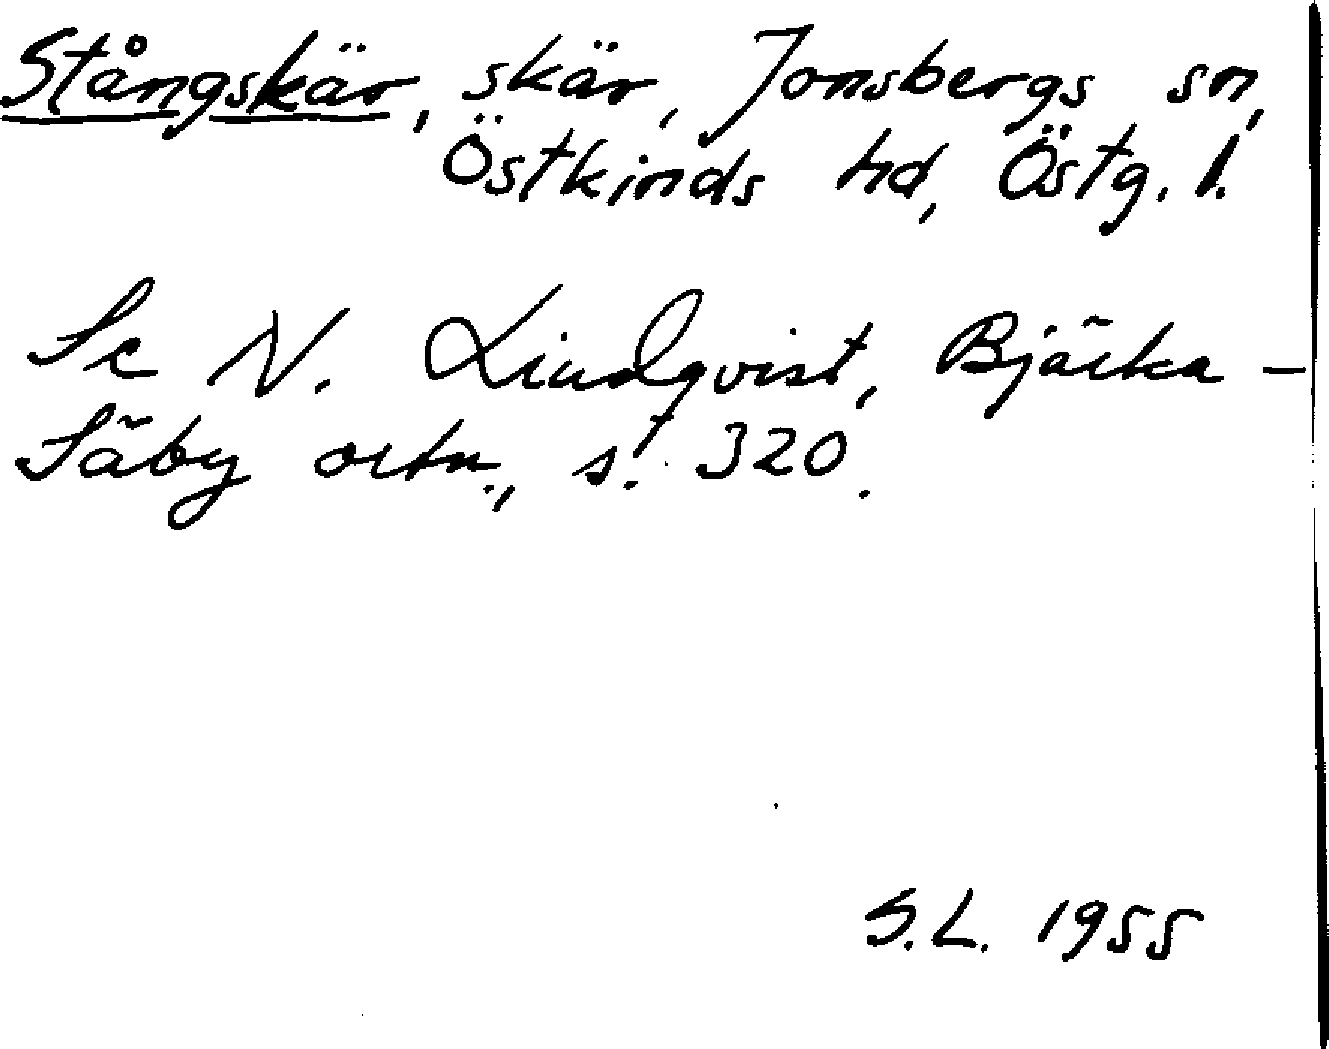 Stångskär, skär, Jonsbergs sn,
Östkinds hd, Östg. l.
Se N. Lindqvist, Bjärka-
Säby ortn., s. 320.
S.L. 1955